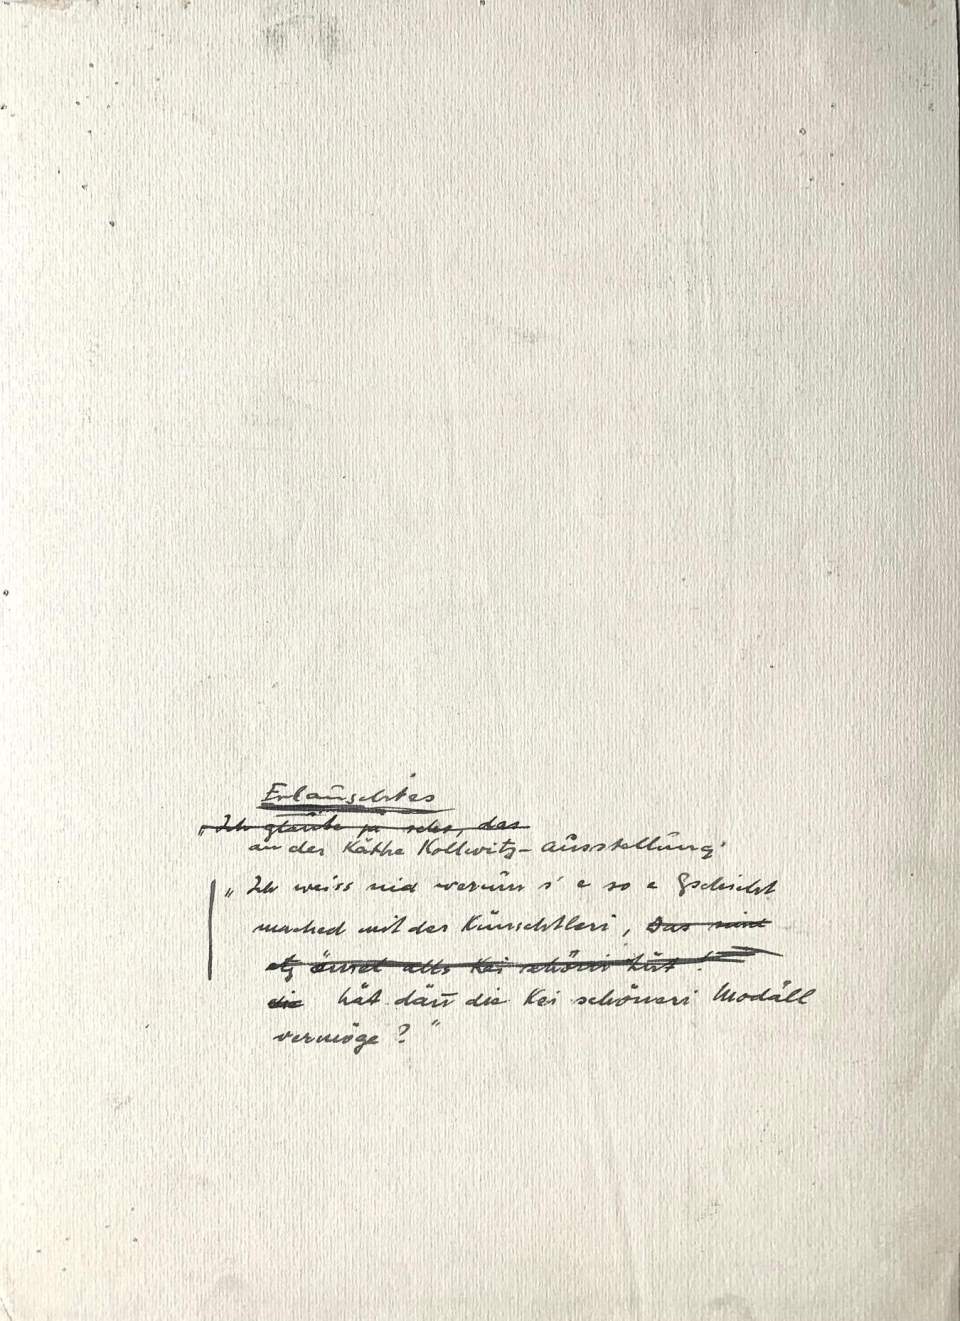 Erlauschtes
„Ich glaube ja das
an der Käthe Kollwitz-Ausstellung'
„Ich weiss nid werum s' e so e Gschicht
mached mit der Künschtleri, Das sind
etz alls kei schöni Lüt!
die hät dänn die kei schöneri Modäll
vermöge?"